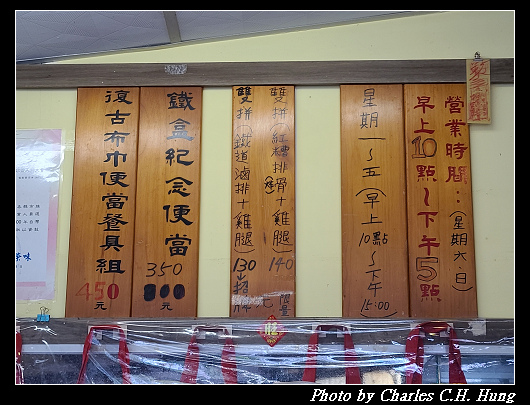 營業時間：(星期六.日)
早上10點～下午5點
星期一～五(早上10點～下午15:00
雙拼(紅糟排骨+雞腿)140
雙拼(鐵道滷排+雞腿)130
招牌
元
限量
鐵盒紀念便當
350
元
復古布巾便當餐具組
450元
旺
Photo by Charles C.H. Hung